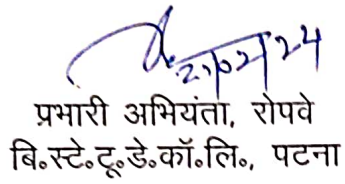 27/02/24
प्रभारी अभियंता, रोपवे
बि॰स्टे॰टू॰डे॰कॉ॰लि॰, पटना